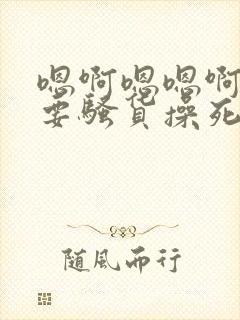 嗯啊嗯嗯啊
要骚货操死
随风而行